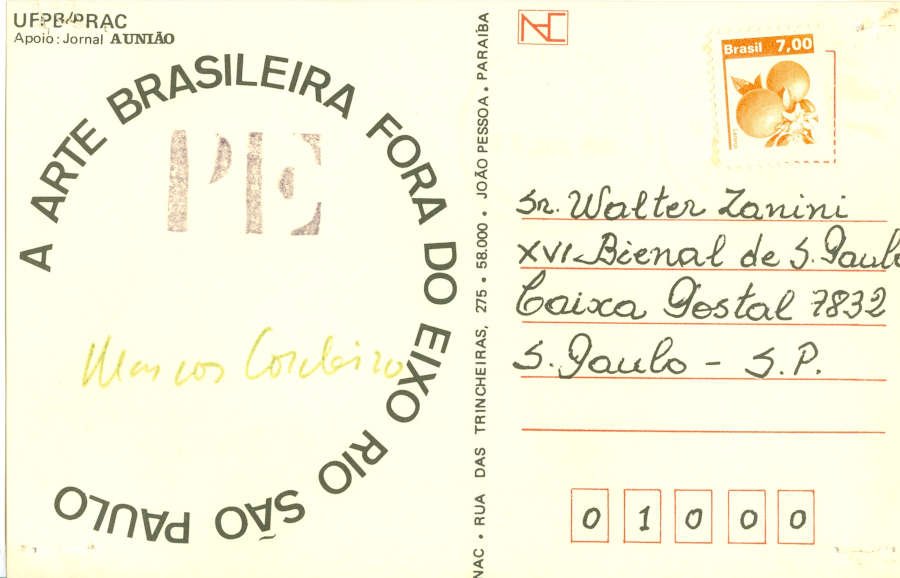 UFPB/PRAC
Apoio: Jornal A UNIÃO
A ARTE BRASILEIRA FORA DO EIXO RIO SÃO PAULO
PE
Marcos Cordeiro
NAC • RUA DAS TRINCHEIRAS, 275 • 58.000 • JOÃO PESSOA • PARAÍBA
NAC
Brasil 7,00
Laranja
Sr. Walter Zanini
XVI-Bienal de S. Paulo
Caixa Postal 7832
S. Paulo - S.P.
0 1 0 0 0